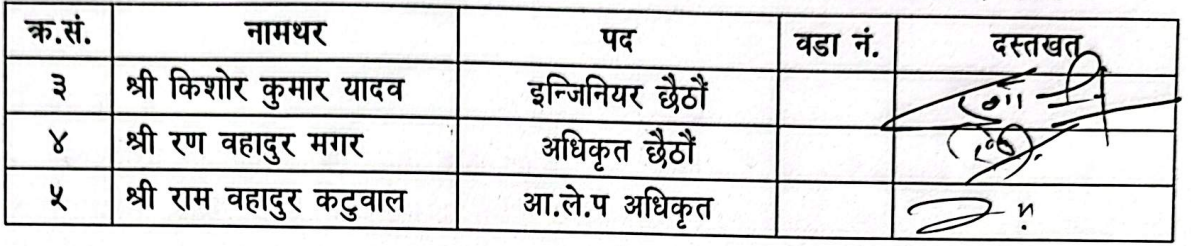 क्र.सं. नामथर पद वडा नं. दस्तखत
३ श्री किशोर कुमार यादव इन्जिनियर छैठौं
४ श्री रण वहादुर मगर अधिकृत छैठौं
५ श्री राम वहादुर कटुवाल आ.ले.प अधिकृत